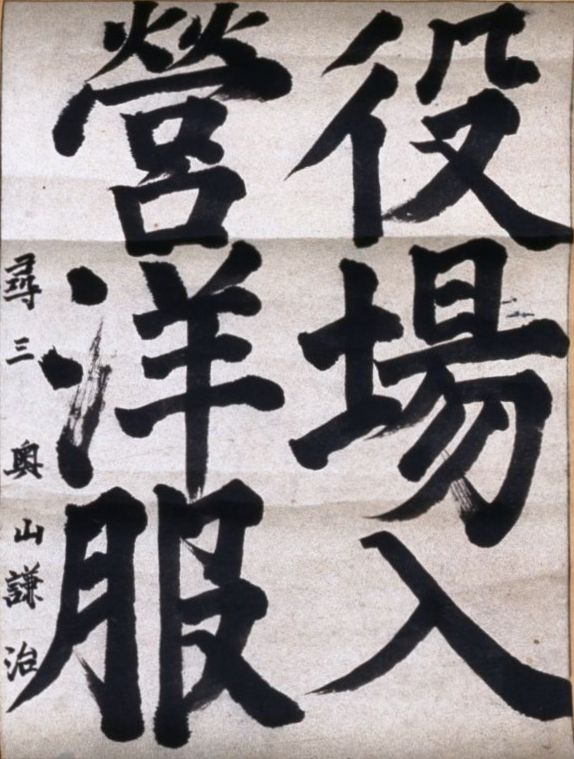 役場入
營洋服
尋三 奥山謙治